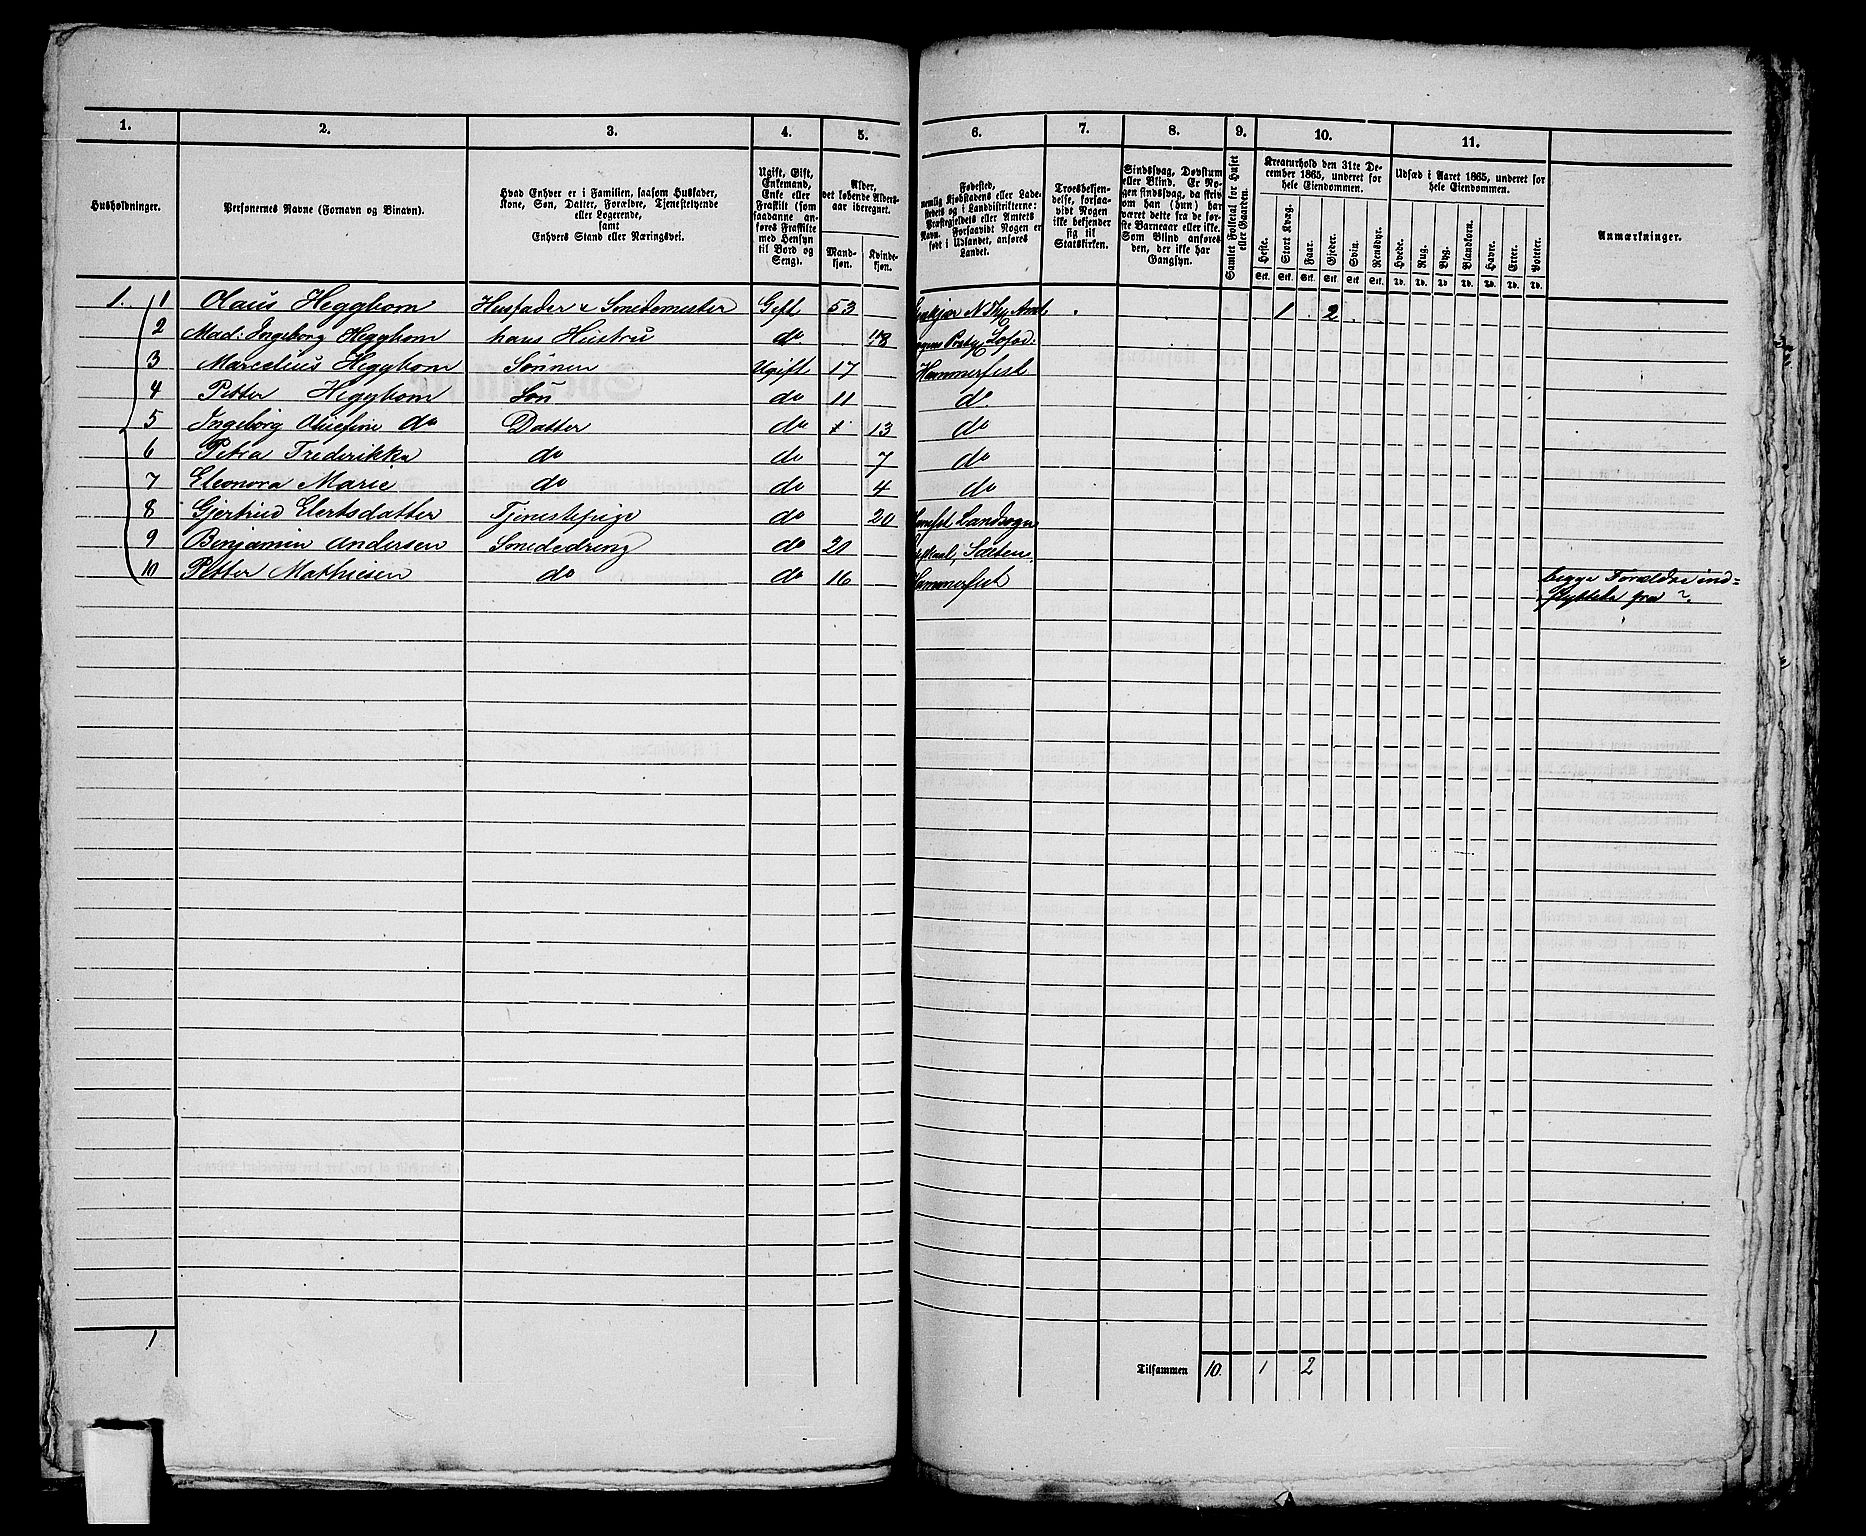 1. 2. 3. 4. 5. 6. 7. 8. 9. 10. 11.
Husholdninger.
Personernes Navne (Fornavn og Binavn).
Hvad Enhver er i Familien, saasom Husfader,
Kone, Søn, Datter, Forældre, Tjenestetyende
eller Logerende,
samt
Enhvers Stand eller Næringsvei.
Ugift, Gift,
Enkemand,
Enke eller
Fraskilt (som
saadanne an-
føres Fraskilte
med Hensyn
til Bord og
Seng).
Alder,
det løbende Alders-
aar iberegnet.
Mand-
kjøn.
Kvinde-
kjøn.
Fødested,
nemlig Kjøbstadens eller Lade-
stedets og i Landdistrikterne:
Præstegjeldets eller Amtets
Navn. Forsaavidt Nogen er
født i Udlandet, anføres
Landet.
Troesbekjen-
delse, forsaa-
vidt Nogen
ikke bekjender
sig til
Statskirken.
Sindssvag, Døvstum
eller Blind. Er No-
gen sindssvag, da skriv
om han (hun) har
været dette fra de før-
ste Barneaar eller ikke.
Som Blind anføres
den, der ikke har
Gangsyn.
Samlet Folketal for Huset
eller Gaarden.
Kreaturhold den 31te De-
cember 1865, underet for
hele Eiendommen.
Heste. Stort Kvæg. Faar. Gjeder. Svin. Rensdyr.
Stk. Stk. Stk. Stk. Stk. Stk.
Udsæd i Aaret 1865, underet for
hele Eiendommen.
Hvede. Rug. Byg. Blandkorn. Havre. Erter. Poteter.
Td. Td. Td. Td. Td. Td. Td.
Anmærkninger.
1. 1 Olaus Heggbom Husfader & Smedemester Gift 53 1 2
2 Mad: Ingeborg Heggbom hans Hustru do 48
3 Marcelius Heggbom Sønnen Ugift 17 Hammerfest
4 Petter Heggbom Søn do 11 do
5 Ingeborg Olufine do Datter do 13 do
6 Petra Frederikka do do 7 do
7 Eleonora Marie do do 4 do
8 Gjertrud Elertsdatter Tjenestepige do 20 Landsogn
9 Benjamin Andersen Smededreng do 21
10 Petter Mathiesen do do 16 Hammerfest begge Forældre ind=
flyttede fra ?
1
Tilsammen 10. 1 2